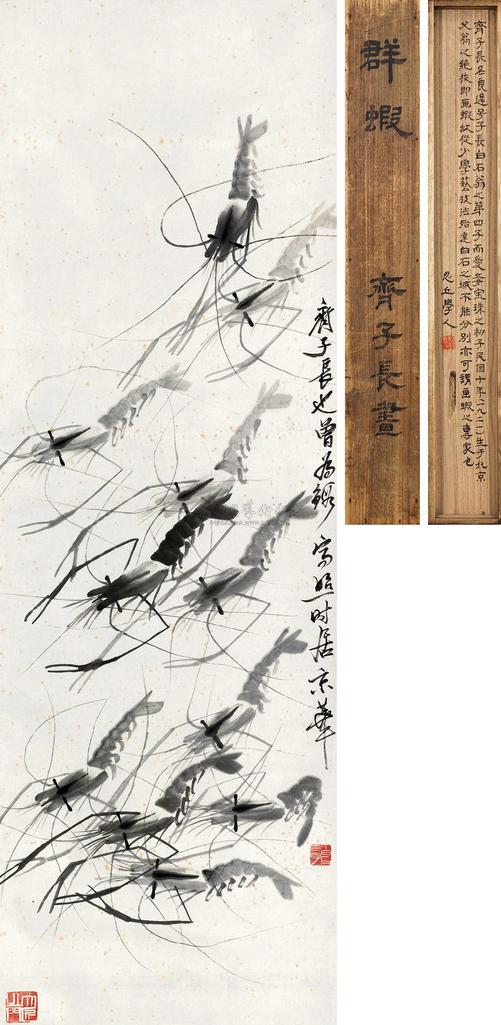 齊子長也曾為蝦寫照時居京華
群蝦 齊子長畫
齊子長名良遲号子長白石翁之第四子而愛妾宝珠之初子民国十年(一九二一)生于北京
父翁之絶技即画蝦故從少學藝技法殆達白石之域不能分別亦可謂画蝦之專家也
忍丘學人